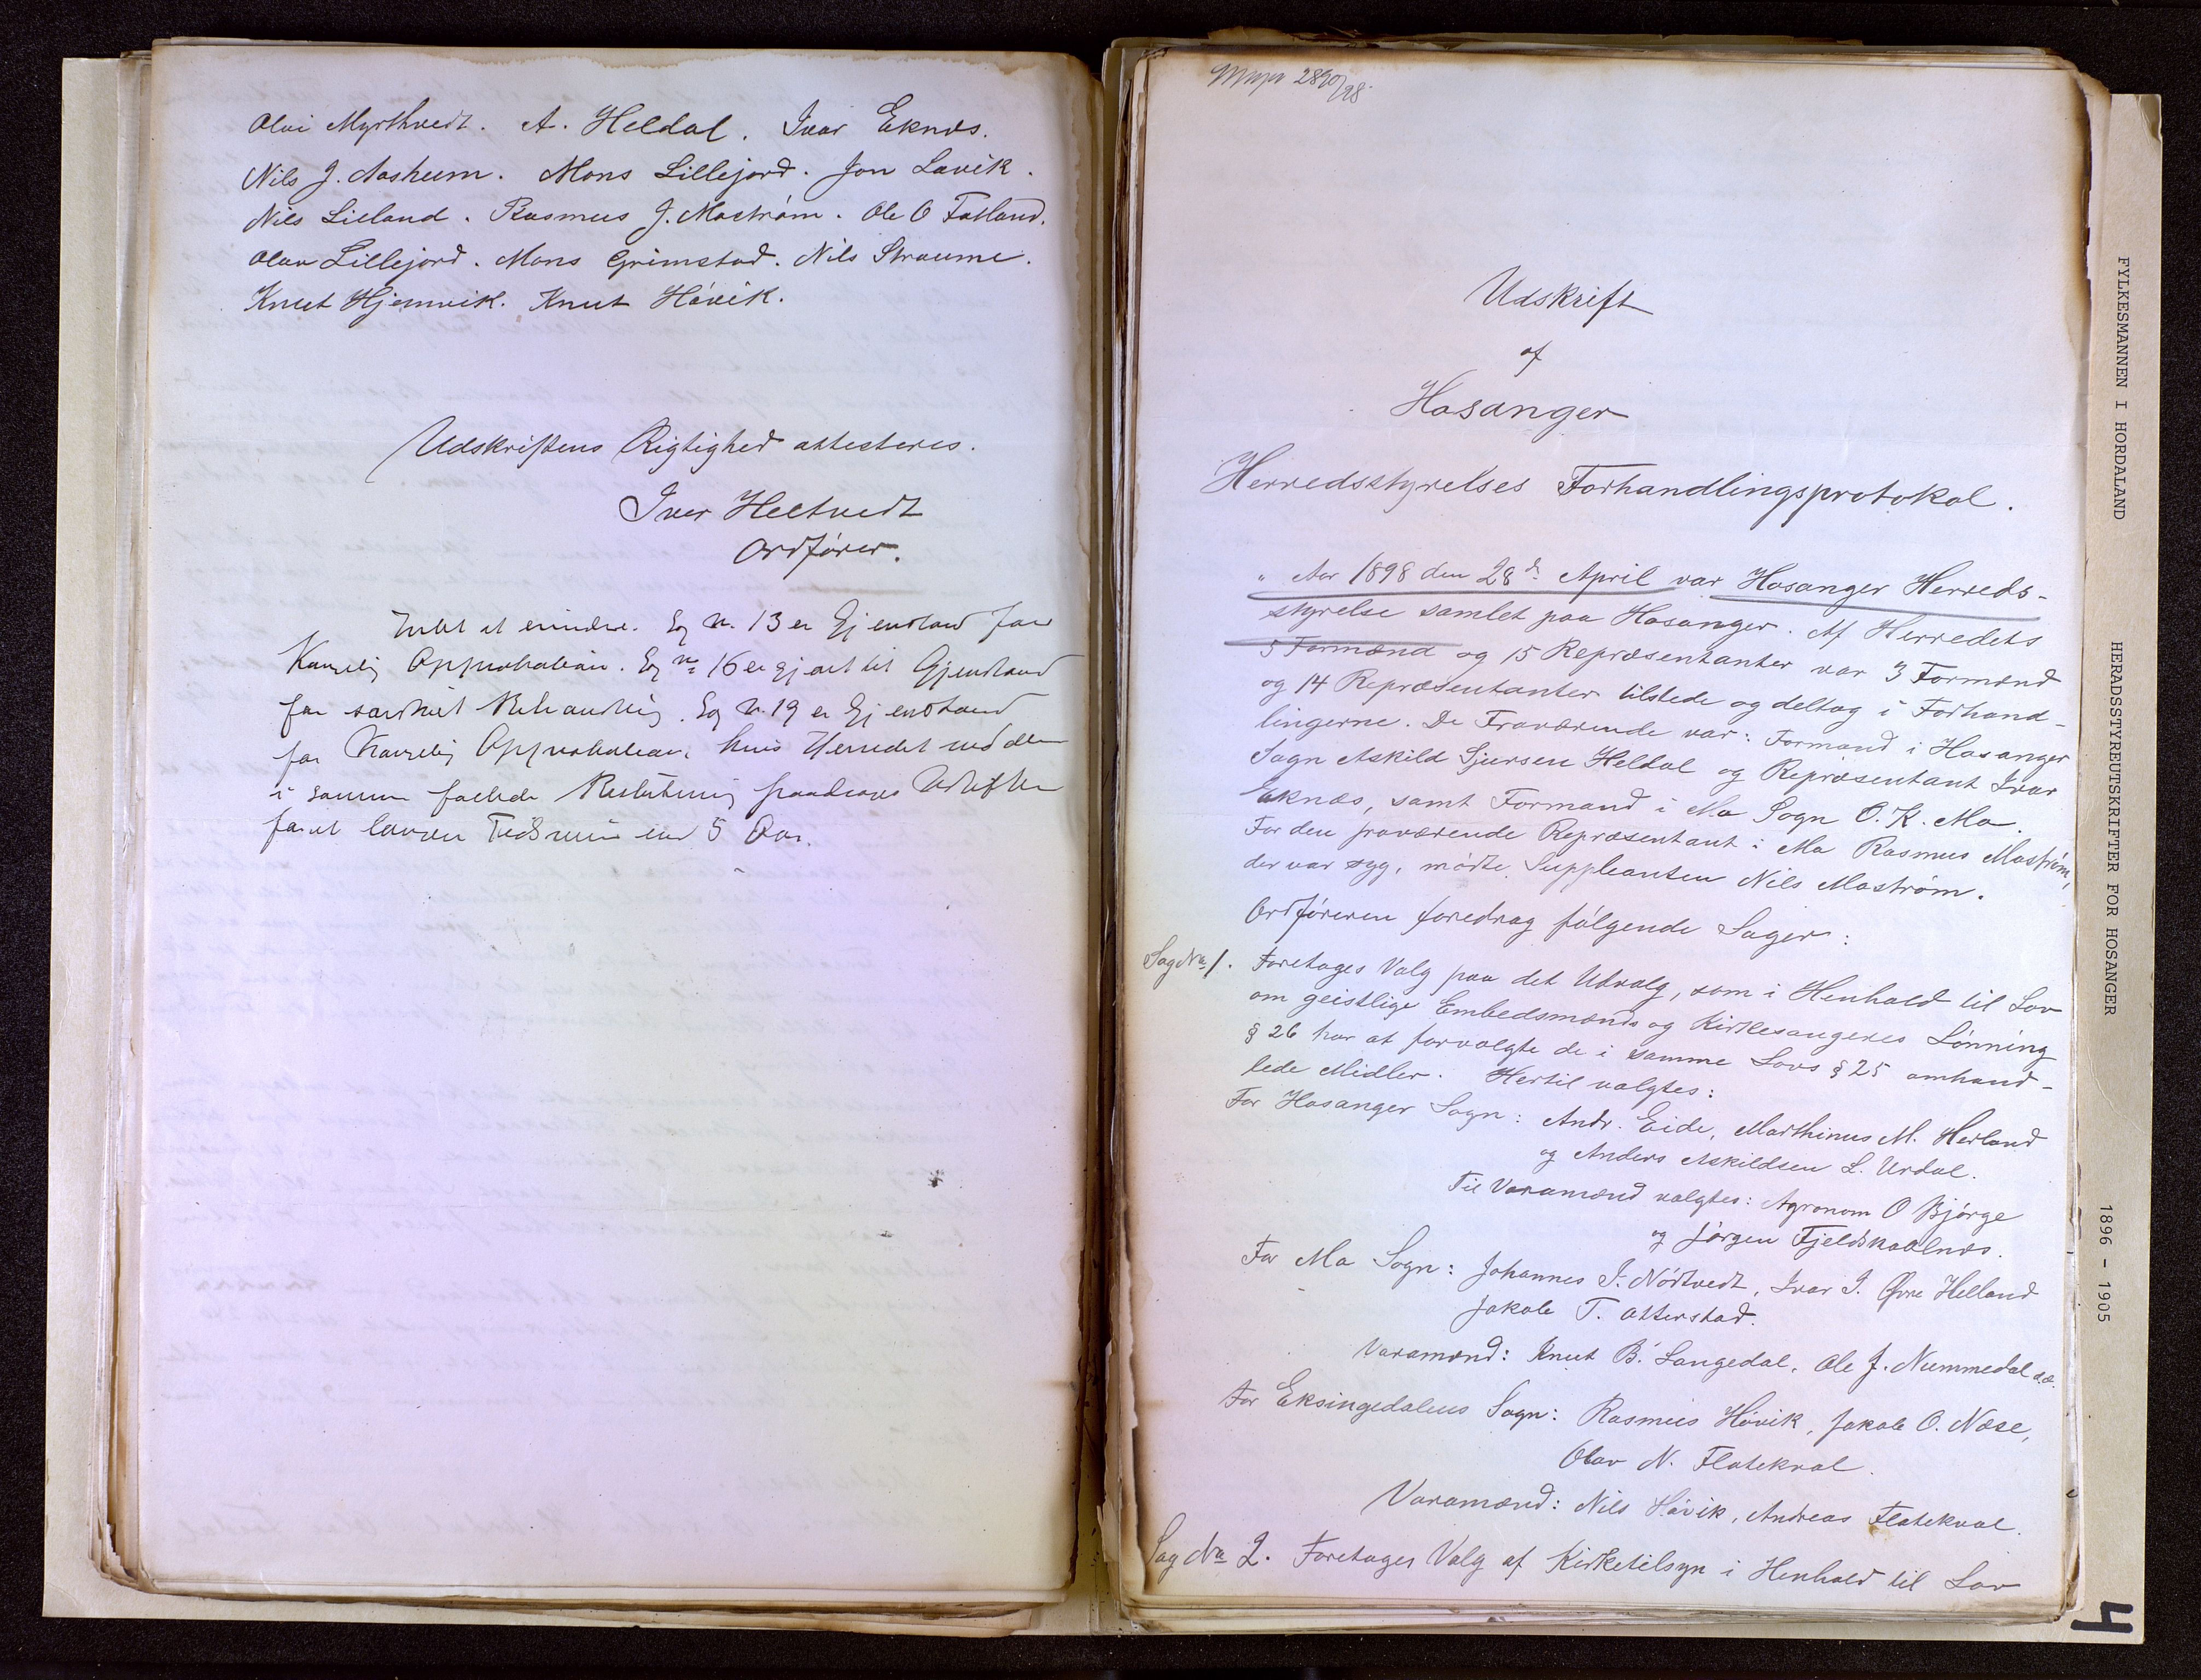 Olai Myrthvedt. A. Heldal. Ivar Eknes.
Nils J. Aasheim. Mons Lillejord. Jon Lavik.
Nils Lieland. Rasmus J. Mostrøm. Ole O Fatland.
Olav Lillejord. Mons Grimstad. Nils Straume.
Knut Hjemvik. Knut Høvik.
Udskriftens Rigtighed attesteres.
Iver Heltvedt
Ordfører.
Intet at erindre. Sag No. 13 er Gjenstand for
Kongelig Approbation. Sag No 16 er gjort til Gjenstand
for særskilt Behandling. Sag No. 19 er Gjenstand
for Kongelig Approbation, hvis Herredet ved den
i samme fattede Beslutning paadrages Udgifter
for et længere Tidsrum end 5 Aar.
2890/98.
Udskrift
af
Hosanger
Herredsstyrelses Forhandlingsprotokol.
" Aar 1898 den 28de April var Hosanger Herreds-
styrelse samlet paa Hosanger. Af Herredets
5 Formænd og 15 Repræsentanter var 3 Formænd
og 14 Repræsentanter tilstede og deltog i Forhand-
lingerne. De Fraværende var: Formand i Hosanger
Sogn Askild Sjursen Heldal og Repræsentant Ivar
Eknæs, samt Formand i Mo Sogn O. K. Mo.
For den fraværende Repræsentant i Mo Rasmus Mostrøm,
der var syg, mødte Suppleanten Nils Mostrøm.
Ordføreren foredrog følgende Sager:
Sag No 1. Foretages Valg paa det Udvalg, som i Henhold til Lov
om geistlige Embedsmænds og Kirkesangeres Lønning
§ 26 har at forvalgte de i samme Lovs § 25 omhand-
lede Midler. Hertil valgtes:
For Hosanger Sogn: Andr. Eide, Marthinus M. Herland
og Anders Askildsen L. Urdal.
Til Varamænd valgtes: Agronom O Bjørge
og Jørgen Fjeldskaalnæs.
For Mo Sogn: Johannes I. Nørtvedt, Ivar I. Øvre Helland
Jakob T. Otterstad.
Varamænd: Knut B. Langedal, Ole J. Nummedal d.æ.
For Eksingedalens Sogn: Rasmus Høvik, Jakob O. Næse,
Olav N. Flatekval.
Varamænd: Nils Høvik, Andreas Flatekval.
Sag No 2. Foretages Valg af Kirketilsyn i Henhold til Lov
FYLKESMANNEN I HORDALAND HERADSSTYREUTSKRIFTER FOR HOSANGER 1896 - 1905
4